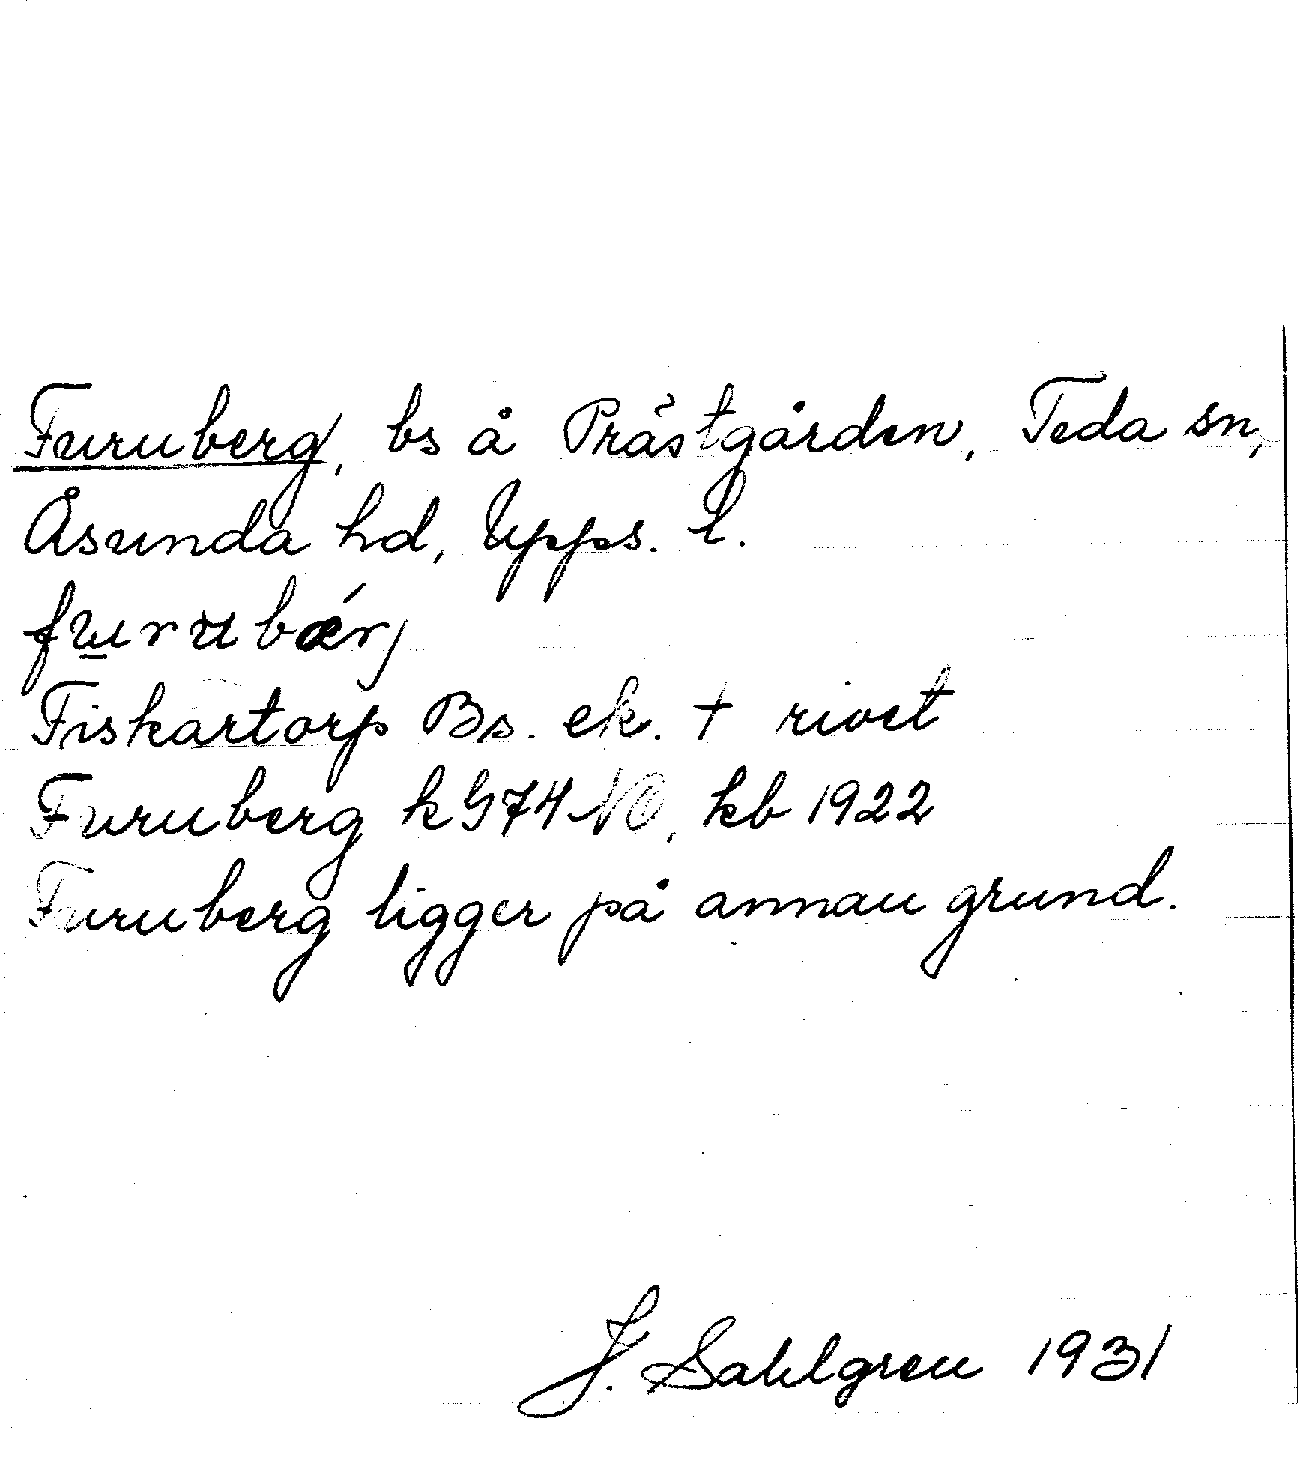 Furuberg, bs å Prästgården, Teda sn,
Åsunda hd, Upps. l.
furubǽrj
Fiskartorp Bs. ek. + rivet
Furuberg k G74 NO, kb 1922
Furuberg ligger på annan grund.
J. Sahlgren 1931